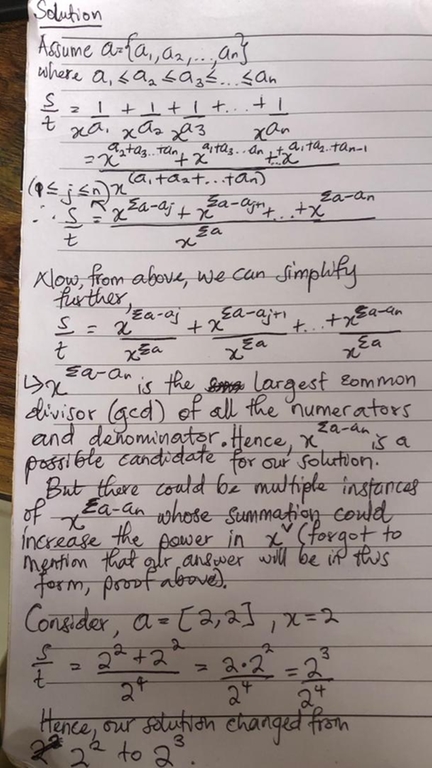 Solution
Assume a={a₁,a₂,...,aₙ}
where a₁≤a₂≤a₃≤...≤aₙ
s/t = 1/x^a₁ + 1/x^a₂ + 1/x^a₃ +...+ 1/x^aₙ
= (x^(a₂+a₃..+aₙ) + x^(a₁+a₃...aₙ) + .. + x^(a₁+a₂..+aₙ₋₁)) / x^(a₁+a₂+...+aₙ)
(1≤j≤n)
∴ s/t = (x^(Σa-aj) + x^(Σa-aj+1) +...+ x^(Σa-an)) / x^(Σa)
Now, from above, we can simplify
further,
s/t = x^(Σa-aj)/x^(Σa) + x^(Σa-aj+1)/x^(Σa) +...+ x^(Σa-an)/x^(Σa)
↳ x^(Σa-an) is the largest common
divisor (gcd) of all the numerators
and denominator. Hence, x^(Σa-an) is a
possible candidate for our solution.
But there could be multiple instances
of x^(Σa-an) whose summation could
increase the power in x^v (forgot to
mention that our answer will be in this
form, proof above).
Consider, a = [2,2], x=2
s/t = (2²+2²)/2⁴ = 2·2²/2⁴ = 2³/2⁴
Hence, our solution changed from
2² to 2³.